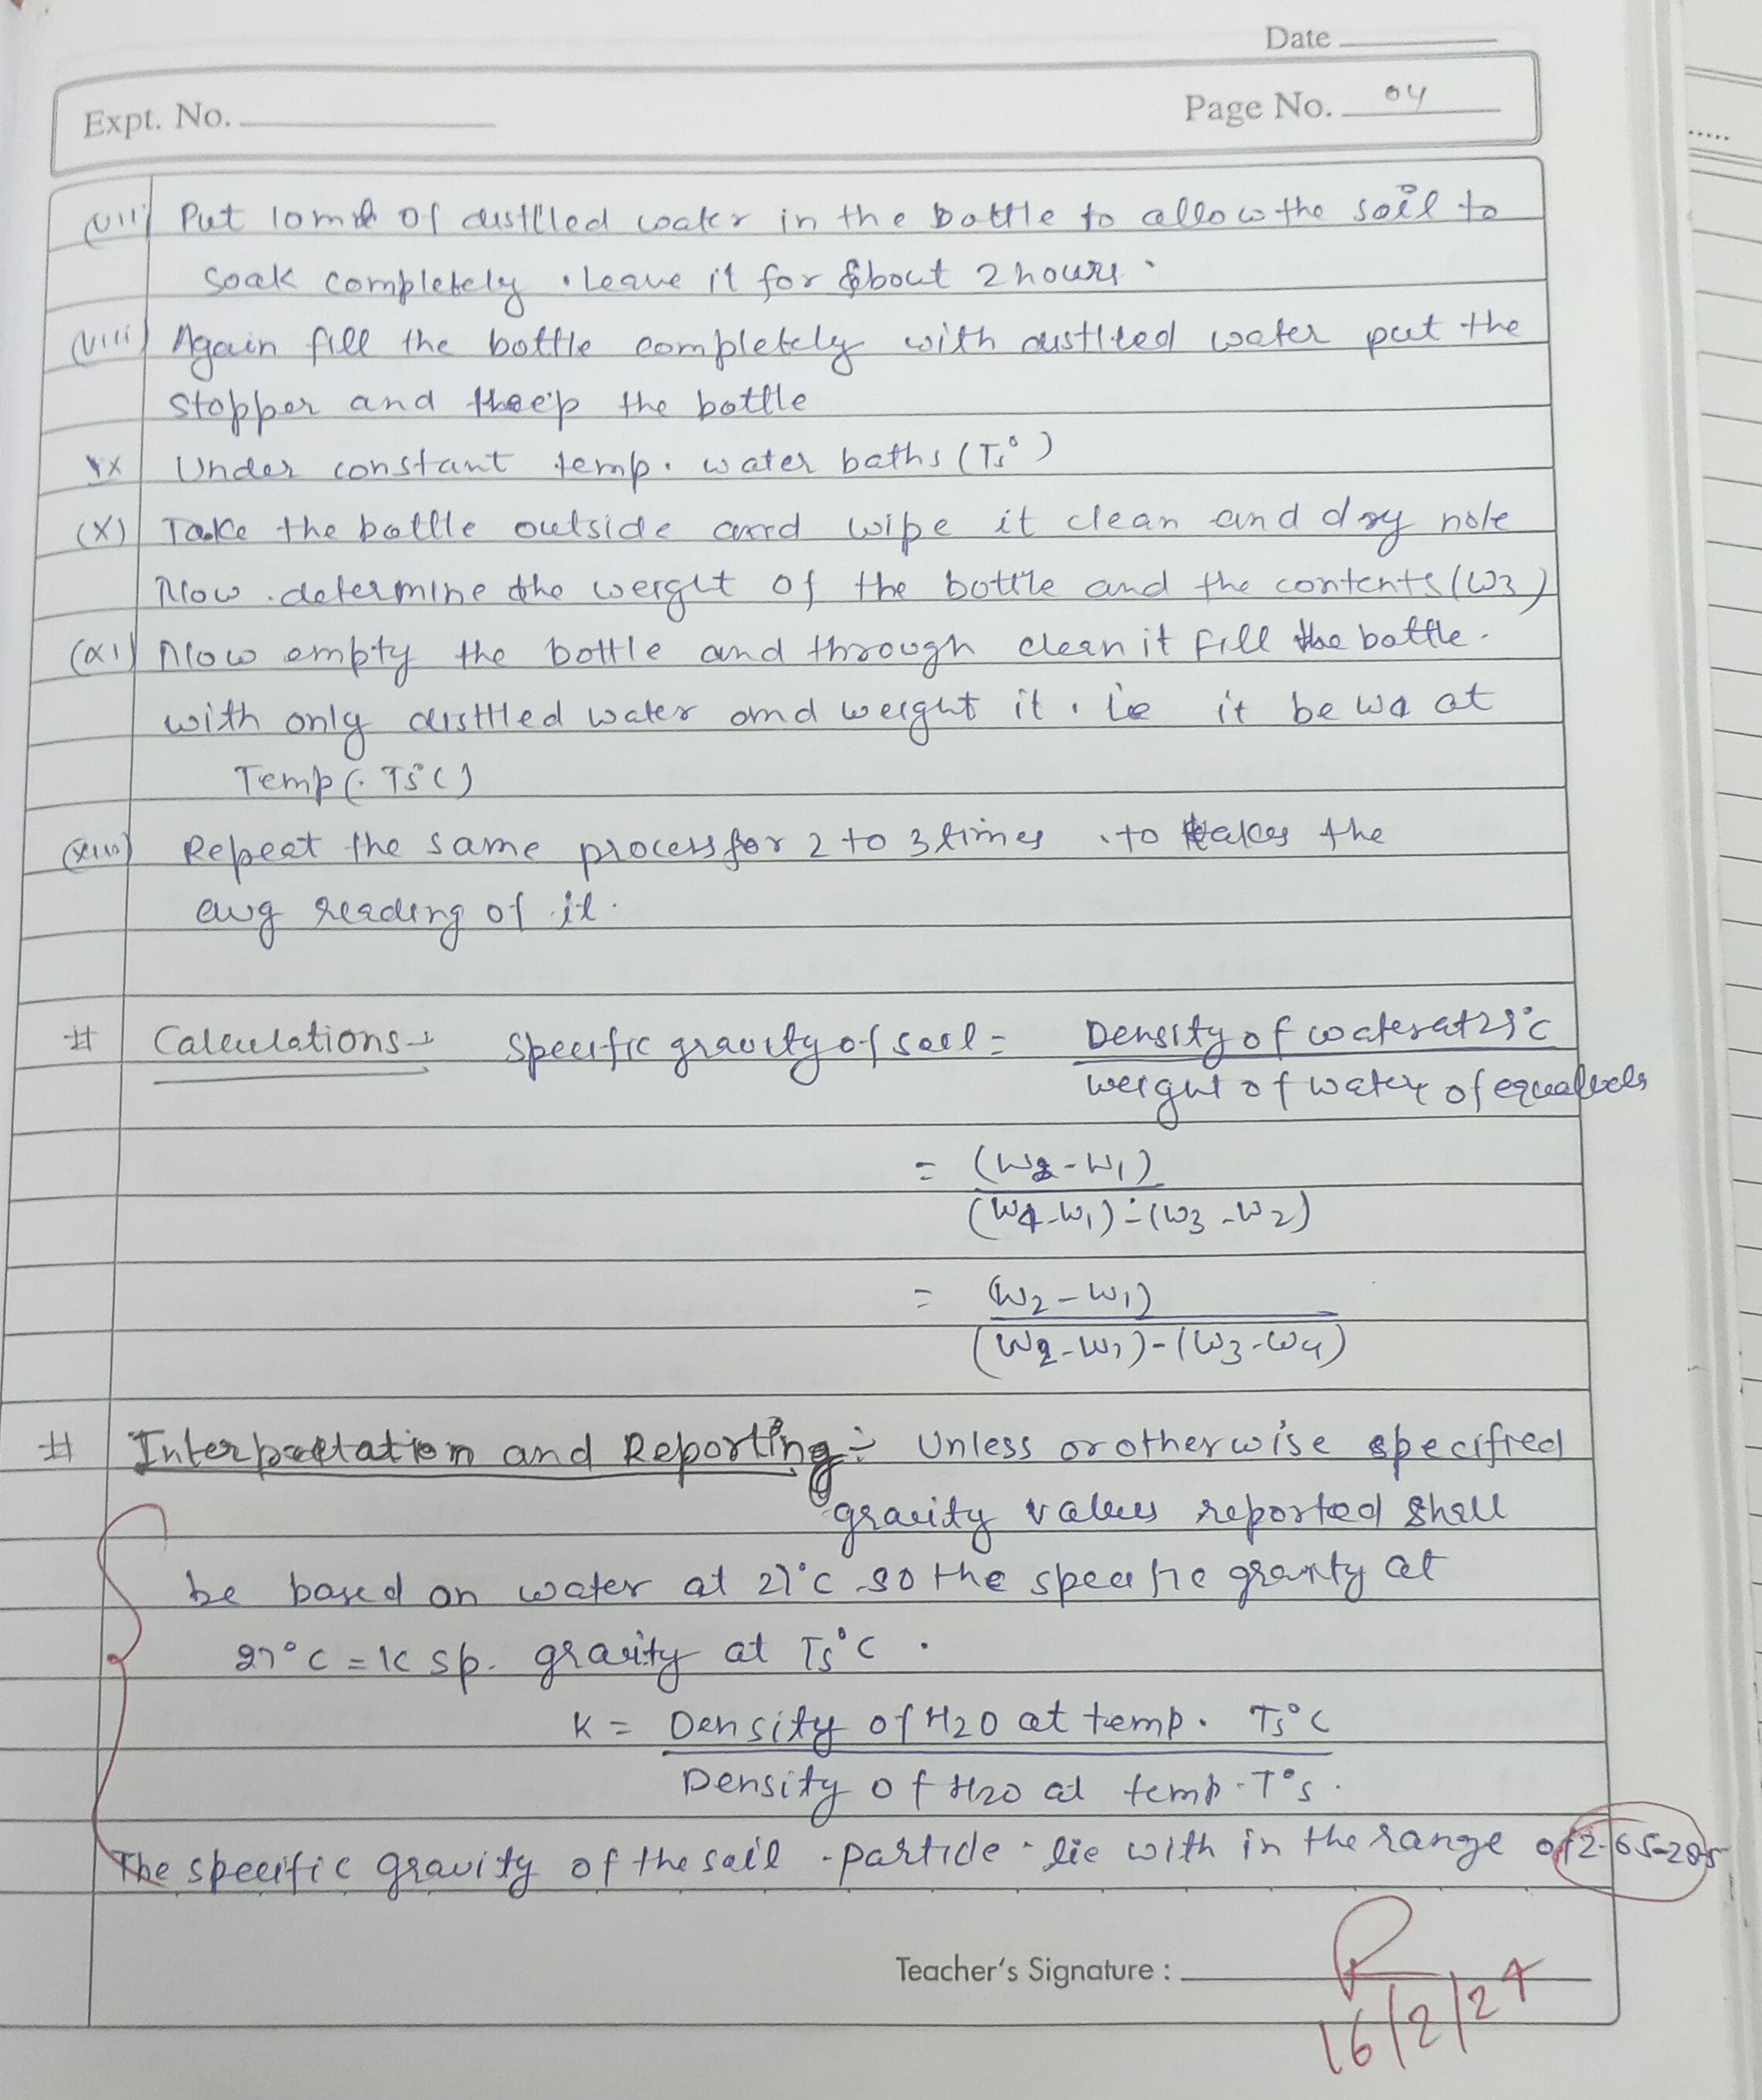 Date
Expt. No.
Page No. 04
(vii) Put 10ml of distlled water in the bottle to allow the soil to
soak completely . leave it for about 2 hours .
(viii) Again fill the bottle completely with distlled water put the
stopper and keep the bottle
ix Under constant temp. water baths (Ts°)
(X) Take the bottle outside and wipe it clean and dry note
Now determine the weight of the bottle and the contents (W3)
(xi) Now empty the bottle and through clean it fill the bottle .
with only distlled water and weight it . ie it be W4 at
Temp (. Ts°C)
(xiii) Repeat the same process for 2 to 3 times . to takes the
avg reading of it .
# Calculations → Specific gravity of soil = Density of water at 27°C
weight of water of equal vols
= (W2 - W1)
(W4 - W1) - (W3 - W2)
= (W2 - W1)
(W2 - W1) - (W3 - W4)
# Interpretation and Reporting :- Unless or otherwise specified
gravity values reported shall
be based on water at 27°C so the specific gravity at
27°C = K sp. gravity at Ts°C .
K = Density of H2O at temp. Ts°C
Density of H2O at temp. T°s .
The specific gravity of the soil - particle - lie with in the range of 2.65-2.85
Teacher's Signature :
16/2/24